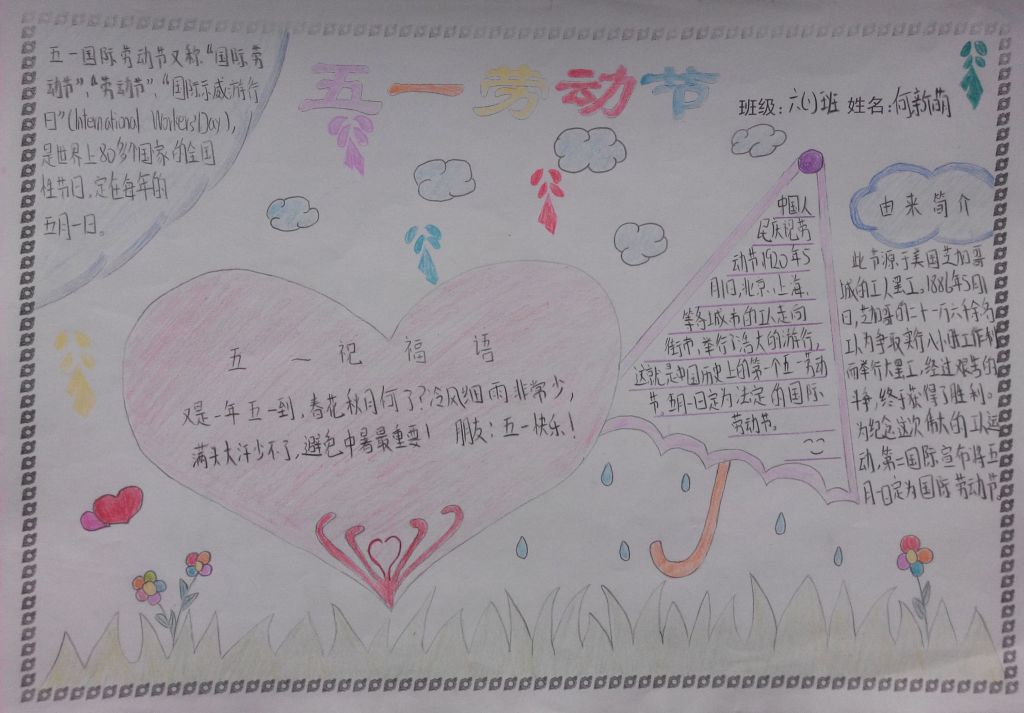 五一劳动节
班级：六(1)班 姓名：何新萌
五一国际劳动节又称"国际劳
动节"、"劳动节"，"国际示威游行
日"(International Workers'Day)，
是世界上80多个国家的全国
性节日，定在每年的
五月一日。
五一祝福语
又是一年五一到，春花秋月何了？冷风细雨非常少，
满头大汗少不了，避色中暑最重要！ 朋友：五一快乐！
中国人
民庆祝劳
动节1920年5
月1日，北京、上海、
等各城市的工人走向
街市，举行了浩大的游行，
这就是中国历史上的第一个五一劳动
节，五月一日定为法定的国际
劳动节。
由来简介
此节源于美国芝加哥
城的工人罢工，1886年5月1
日，芝加哥的二十一万六千余名
工人为争取实行八小时工作制
而举行大罢工，经过艰苦的
斗争，终于获得了胜利。
为纪念这次伟大的工人运
动，第二国际宣布将五
月一日定为国际劳动节